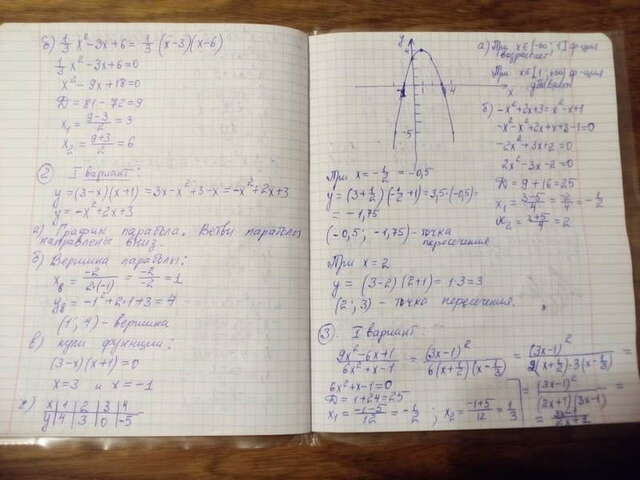 б) 1/3 x² - 3x + 6 = 1/3 (x-3)(x-6)
1/3 x² - 3x + 6 = 0
x² - 9x + 18 = 0
D = 81 - 72 = 9
x₁ = (9-3)/2 = 3
x₂ = (9+3)/2 = 6
② I вариант:
y = (3-x)(x+1) = 3x - x² + 3 - x = -x² + 2x + 3
y = -x² + 2x + 3
а) График парабола. Ветви параболы
направлены вниз.
б) Вершина параболы:
x_в = -2/(2·(-1)) = -2/-2 = 1
y_в = -1² + 2·1 + 3 = 4
(1; 4) - вершина
в) нули функции:
(3-x)(x+1) = 0
x = 3 и x = -1
г) x | 1 | 2 | 3 | 4
y | 4 | 3 | 0 | -5
y
4
x
-5
а) При x∈(-∞; 1] ф-ция
возрастает
При x∈[1; +∞) ф-ция
убывает
б) -x² + 2x + 3 = x² - x + 1
-x² - x² + 2x + x + 2 - 1 = 0
-2x² + 3x + 2 = 0
2x² - 3x - 2 = 0
D = 9 + 16 = 25
x₁ = (3-5)/4 = -2/4 = -1/2
x₂ = (3+5)/4 = 2
При x = -1/2 = -0,5
y = (3 + 1/2)(-1/2 + 1) = 3,5·(-0,5) =
= -1,75
(-0,5; -1,75) - точка
пересечения
При x = 2
y = (3-2)(2+1) = 1·3 = 3
(2; 3) - точка пересечения.
③ I вариант:
(9x² - 6x + 1)/(6x² + x - 1) = (3x-1)²/(6(x+1/2)(x-1/3)) = (3x-1)²/(2(x+1/2)·3(x-1/3)) =
6x² + x - 1 = 0
D = 1 + 24 = 25
x₁ = (-1-5)/12 = -1/2 ; x₂ = (-1+5)/12 = 1/3
= (3x-1)²/((2x+1)(3x-1)) =